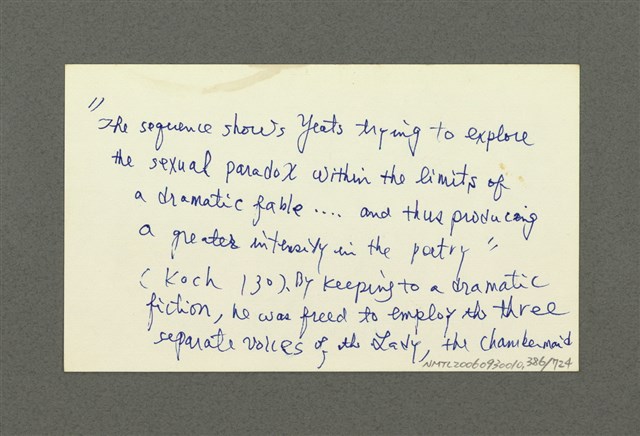 "The sequence shows Yeats trying to explore
the sexual paradox within the limits of
a dramatic fable .... and thus producing
a greater intensity in the poetry"
(Koch 130). By keeping to a dramatic
fiction, he was freed to employ the three
separate voices of the Lady, the Chambermaid
NMTL20060930010,386/724